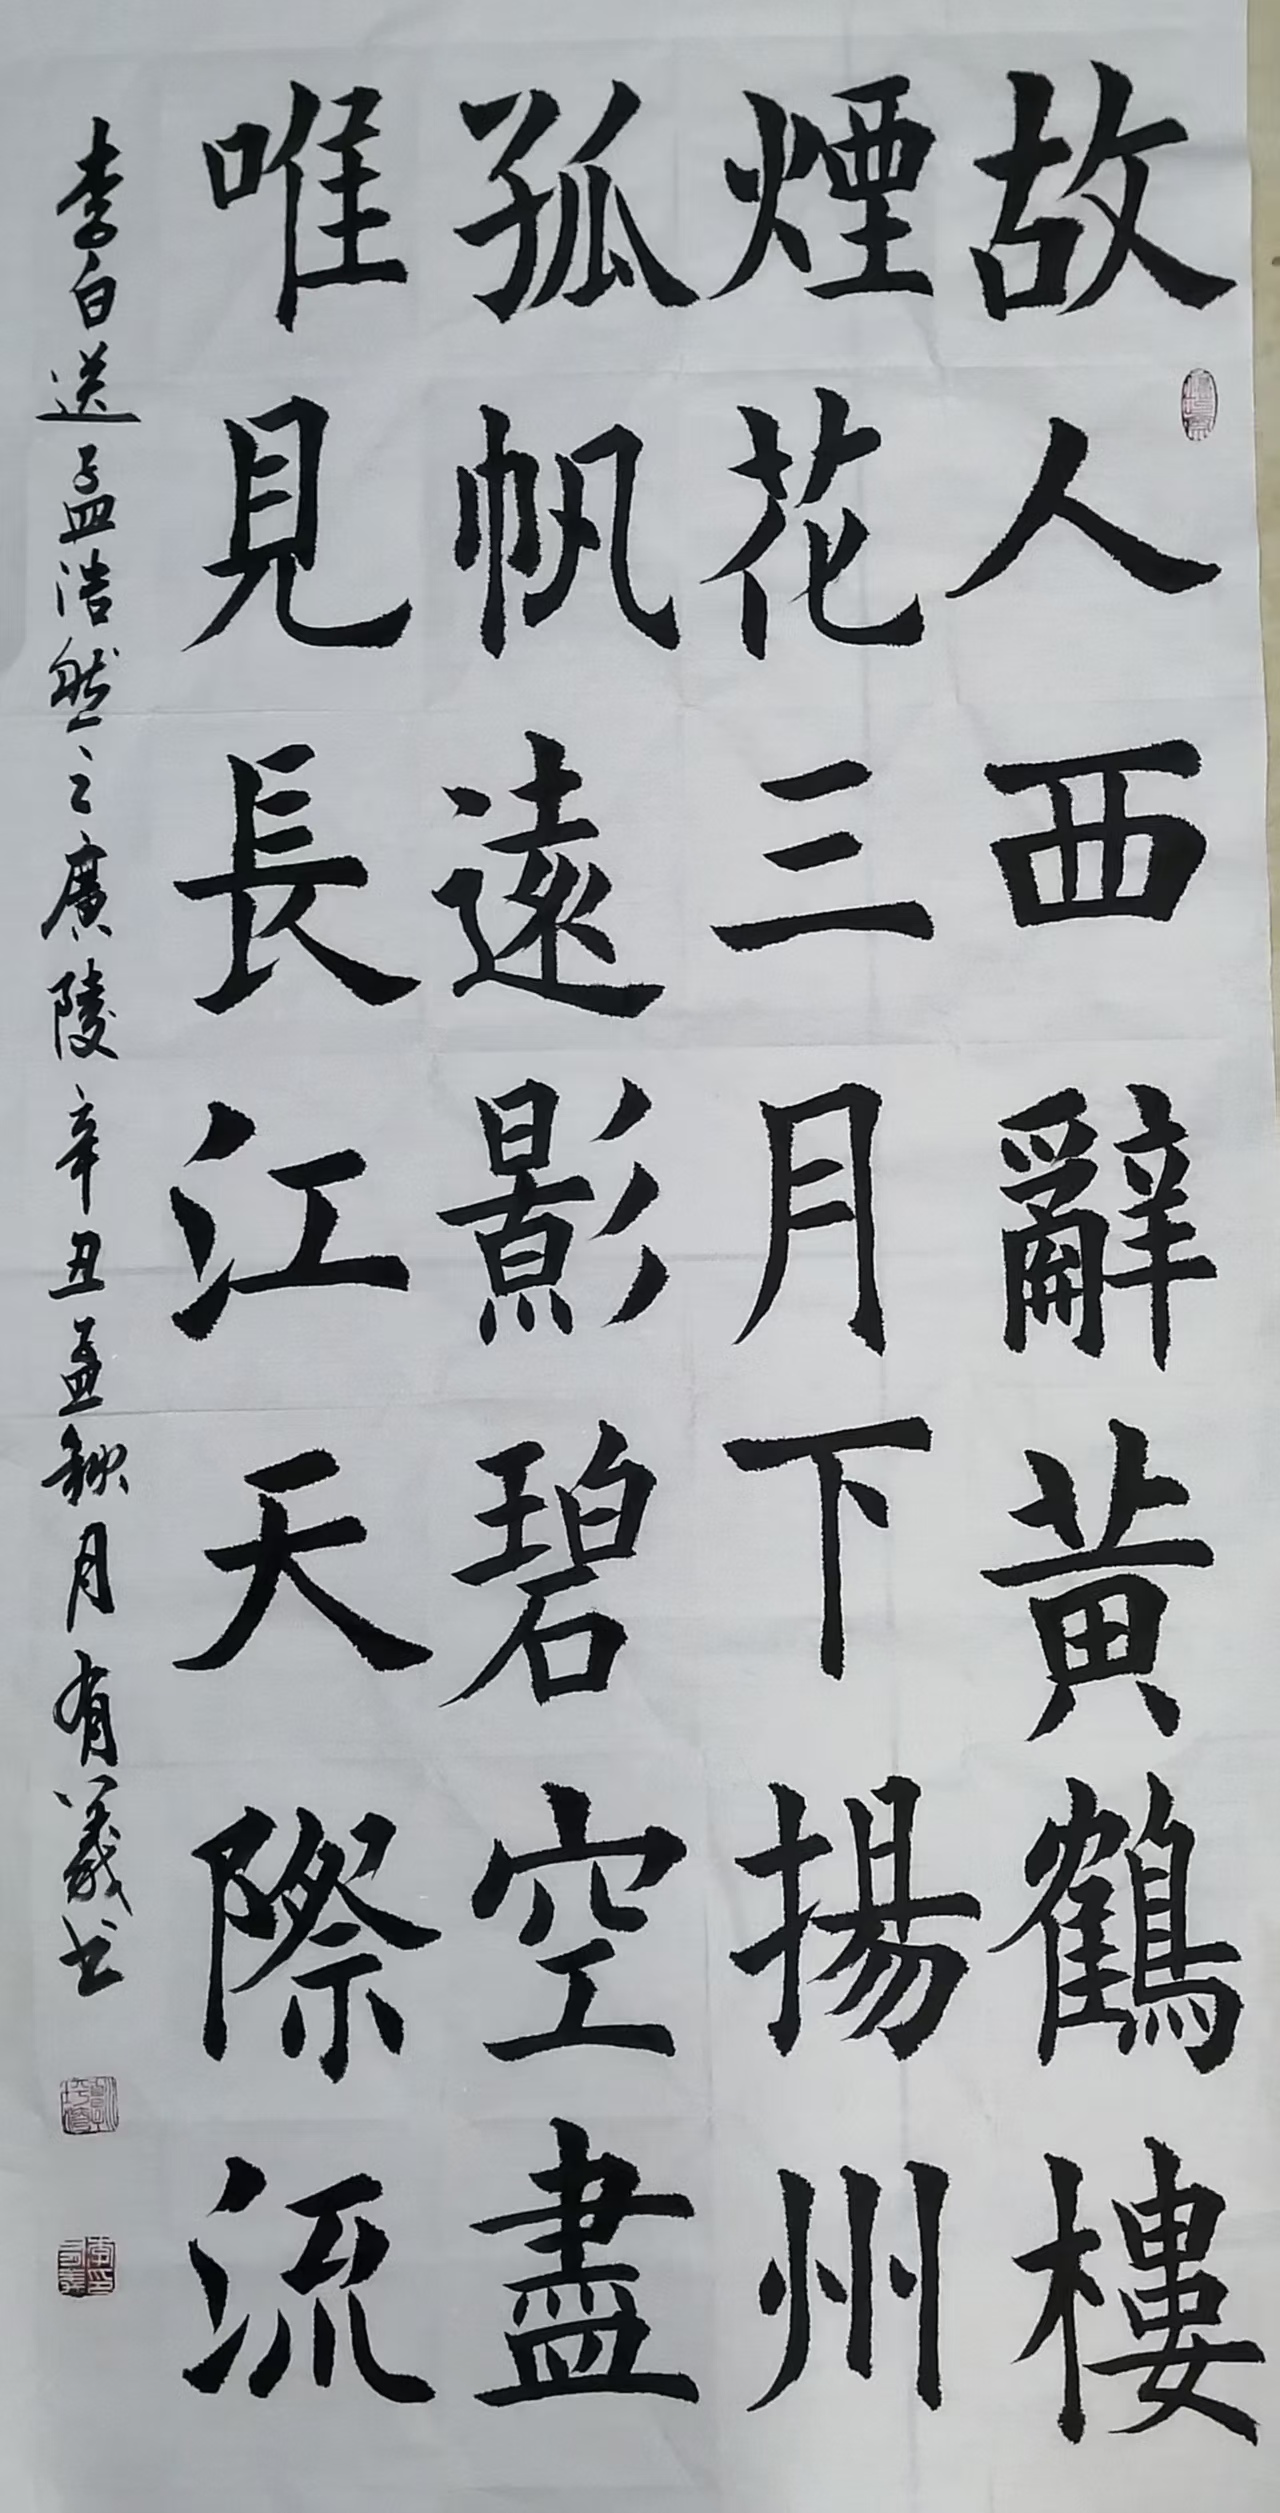 故人西辭黃鶴樓
煙花三月下揚州
孤帆遠影碧空盡
唯見長江天際流
李白送孟浩然之廣陵辛丑孟秋月有義书